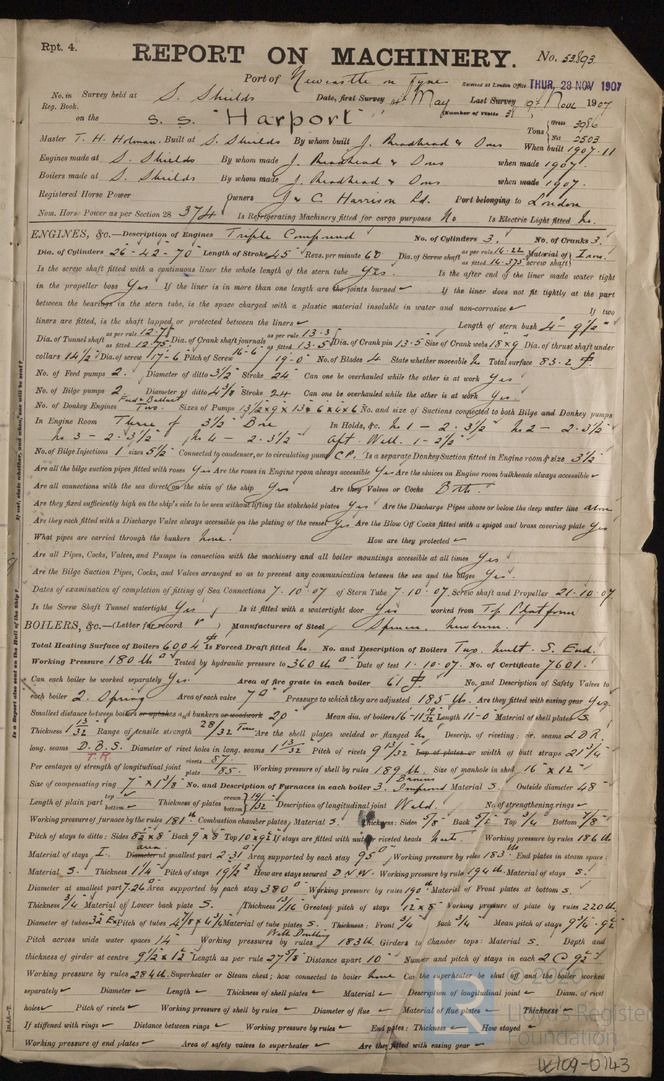 Rpt. 4.
REPORT ON MACHINERY. No. 53893
Port of Newcastle on Tyne Received at London Office THUR, 28 NOV 1907
No. in Survey held at S. Shields Date, first Survey May Last Survey 9th Nov 1907
Reg. Book. (Number of Visits
on the S. S. "Harport" Tons Gross 3986 Net 2503
Master T. H. Holman Built at S. Shields By whom built J. Readhead & Sons When built 1907.11
Engines made at S. Shields By whom made J. Readhead & Sons when made 1907.
Boilers made at S. Shields By whom made J. Readhead & Sons when made 1907.
Registered Horse Power Owners J & C. Harrison Ld. Port belonging to London
Nom. Horse Power as per Section 28 374 Is Refrigerating Machinery fitted for cargo purposes No Is Electric Light fitted No.
ENGINES, &c.—Description of Engines Triple Compound No. of Cylinders 3. No. of Cranks 3.
Dia. of Cylinders 26-42-70 Length of Stroke 45 Revs. per minute 60 Dia. of Screw shaft as per rule 14.22 as fitted 14.375 Material of screw shaft Iron
Is the screw shaft fitted with a continuous liner the whole length of the stern tube Yes. Is the after end of the liner made water tight
in the propeller boss Yes If the liner is in more than one length are the joints burned If the liner does not fit tightly at the part
between the bearings in the stern tube, is the space charged with a plastic material insoluble in water and non-corrosive If two
liners are fitted, is the shaft lapped or protected between the liners Length of stern bush 4'-9½"
Dia. of Tunnel shaft as per rule as fitted 12.75 Dia. of Crank shaft journals as per rule 13.3 as fitted 13.5 Dia. of Crank pin 13.5 Size of Crank webs 18x9 Dia. of thrust shaft under
collars 14½" Dia. of screw 17-6 Pitch of Screw 16-6 19-0 No. of Blades 4 State whether moveable No Total surface 83.2
No. of Feed pumps 2. Diameter of ditto 3½ Stroke 24 Can one be overhauled while the other is at work Yes
No. of Bilge pumps 2 Diameter of ditto 4⅜ Stroke 24 Can one be overhauled while the other is at work Yes
No. of Donkey Engines Feed & Ballast Two. Sizes of Pumps No. and size of Suctions connected to both Bilge and Donkey pumps
In Engine Room Three of 3½ Dia In Holds, &c. No 1 - 2. 3½ No 2 - 2. 3½
No 3 - 2. 3½ No 4 - 2. 3½ Aft Well. 1 - 2½
No. of Bilge Injections 1 sizes 5½ Connected to condenser, or to circulating pump C.P. Is a separate Donkey Suction fitted in Engine room & size 3½
Are all the bilge suction pipes fitted with roses Yes Are the roses in Engine room always accessible Yes Are the sluices on Engine room bulkheads always accessible
Are all connections with the sea direct on the skin of the ship Yes Are they Valves or Cocks Both.
Are they fixed sufficiently high on the ship's side to be seen without lifting the stokehold plates Yes Are the Discharge Pipes above or below the deep water line above
Are they each fitted with a Discharge Valve always accessible on the plating of the vessel Yes Are the Blow Off Cocks fitted with a spigot and brass covering plate Yes
What pipes are carried through the bunkers None. How are they protected
Are all Pipes, Cocks, Valves, and Pumps in connection with the machinery and all boiler mountings accessible at all times Yes
Are the Bilge Suction Pipes, Cocks, and Valves arranged so as to prevent any communication between the sea and the bilges Yes.
Dates of examination of completion of fitting of Sea Connections 7.10.07 of Stern Tube 7.10.07 Screw shaft and Propeller 21.10.07
Is the Screw Shaft Tunnel watertight Yes Is it fitted with a watertight door Yes worked from Top Platform
BOILERS, &c.—(Letter for record ) Manufacturers of Steel Spencer. Newburn.
Total Heating Surface of Boilers 6004 Is Forced Draft fitted No. No. and Description of Boilers Two. mult. S. End.
Working Pressure 180 lb Tested by hydraulic pressure to 360 lb Date of test 1.10.07. No. of Certificate 7601.
Can each boiler be worked separately Yes Area of fire grate in each boiler 61 No. and Description of Safety Valves to
each boiler 2. Spring Area of each valve 7 Pressure to which they are adjusted 185 lb. Are they fitted with easing gear Yes
Smallest distance between boilers or uptakes and bunkers or woodwork 20 Mean dia. of boilers Length 11-0 Material of shell plates S.
Thickness Range of tensile strength 28/32 Tons Are the shell plates welded or flanged No. Descrip. of riveting: cir. seams D R.
long. seams D.B.S. Diameter of rivet holes in long. seams 1 13/32 Pitch of rivets 9 13/32 Lap of plates or width of butt straps 21¾
T.R.
Per centages of strength of longitudinal joint rivets 87. plate 85. Working pressure of shell by rules 189 lb. Size of manhole in shell 16" x 12"
Size of compensating ring 7" x 1⅜ No. and Description of Furnaces in each boiler 3. Material S. Outside diameter 48"
Length of plain part top bottom Thickness of plates crown bottom Description of longitudinal joint Weld. No. of strengthening rings
Working pressure of furnace by the rules 181 lb Combustion chamber plates: Material S. Thickness: Sides ⅝ Back Top ¾ Bottom ⅞
Pitch of stays to ditto: Sides Back 9 x 8 Top If stays are fitted with nuts or riveted heads Nuts. Working pressure by rules 186 lb
Material of stays I. Diameter at smallest part 2.31 Area supported by each stay 95 Working pressure by rules 183 lb End plates in steam space:
Material S. Thickness 1¼ Pitch of stays 19½ How are stays secured D N W. Working pressure by rules 194 lb Material of stays S.
Diameter at smallest part 7.24 Area supported by each stay 380 Working pressure by rules 190 lb Material of Front plates at bottom S.
Thickness ¾ Material of Lower back plate S. Thickness 13/16 Greatest pitch of stays Working pressure of plate by rules 220 lb
Diameter of tubes Pitch of tubes Material of tube plates S. Thickness: Front ¾ Back ¾ Mean pitch of stays
Pitch across wide water spaces 14 Working pressures by rules 183 lb Girders to Chamber tops: Material S. Depth and
thickness of girder at centre Length as per rule 27⅞ Distance apart 10" Number and pitch of stays in each 2 @ 9½"
Working pressure by rules 284 lb. Superheater or Steam chest; how connected to boiler None Can the superheater be shut off and the boiler worked
separately Diameter Length Thickness of shell plates Material Description of longitudinal joint Diam. of rivet
holes Pitch of rivets Working pressure of shell by rules Diameter of flue Material of flue plates Thickness
If stiffened with rings Distance between rings Working pressure by rules End plates: Thickness How stayed
Working pressure of end plates Area of safety valves to superheater Are they fitted with easing gear
© 2020
Lloyd's Register
Foundation
W109-0143